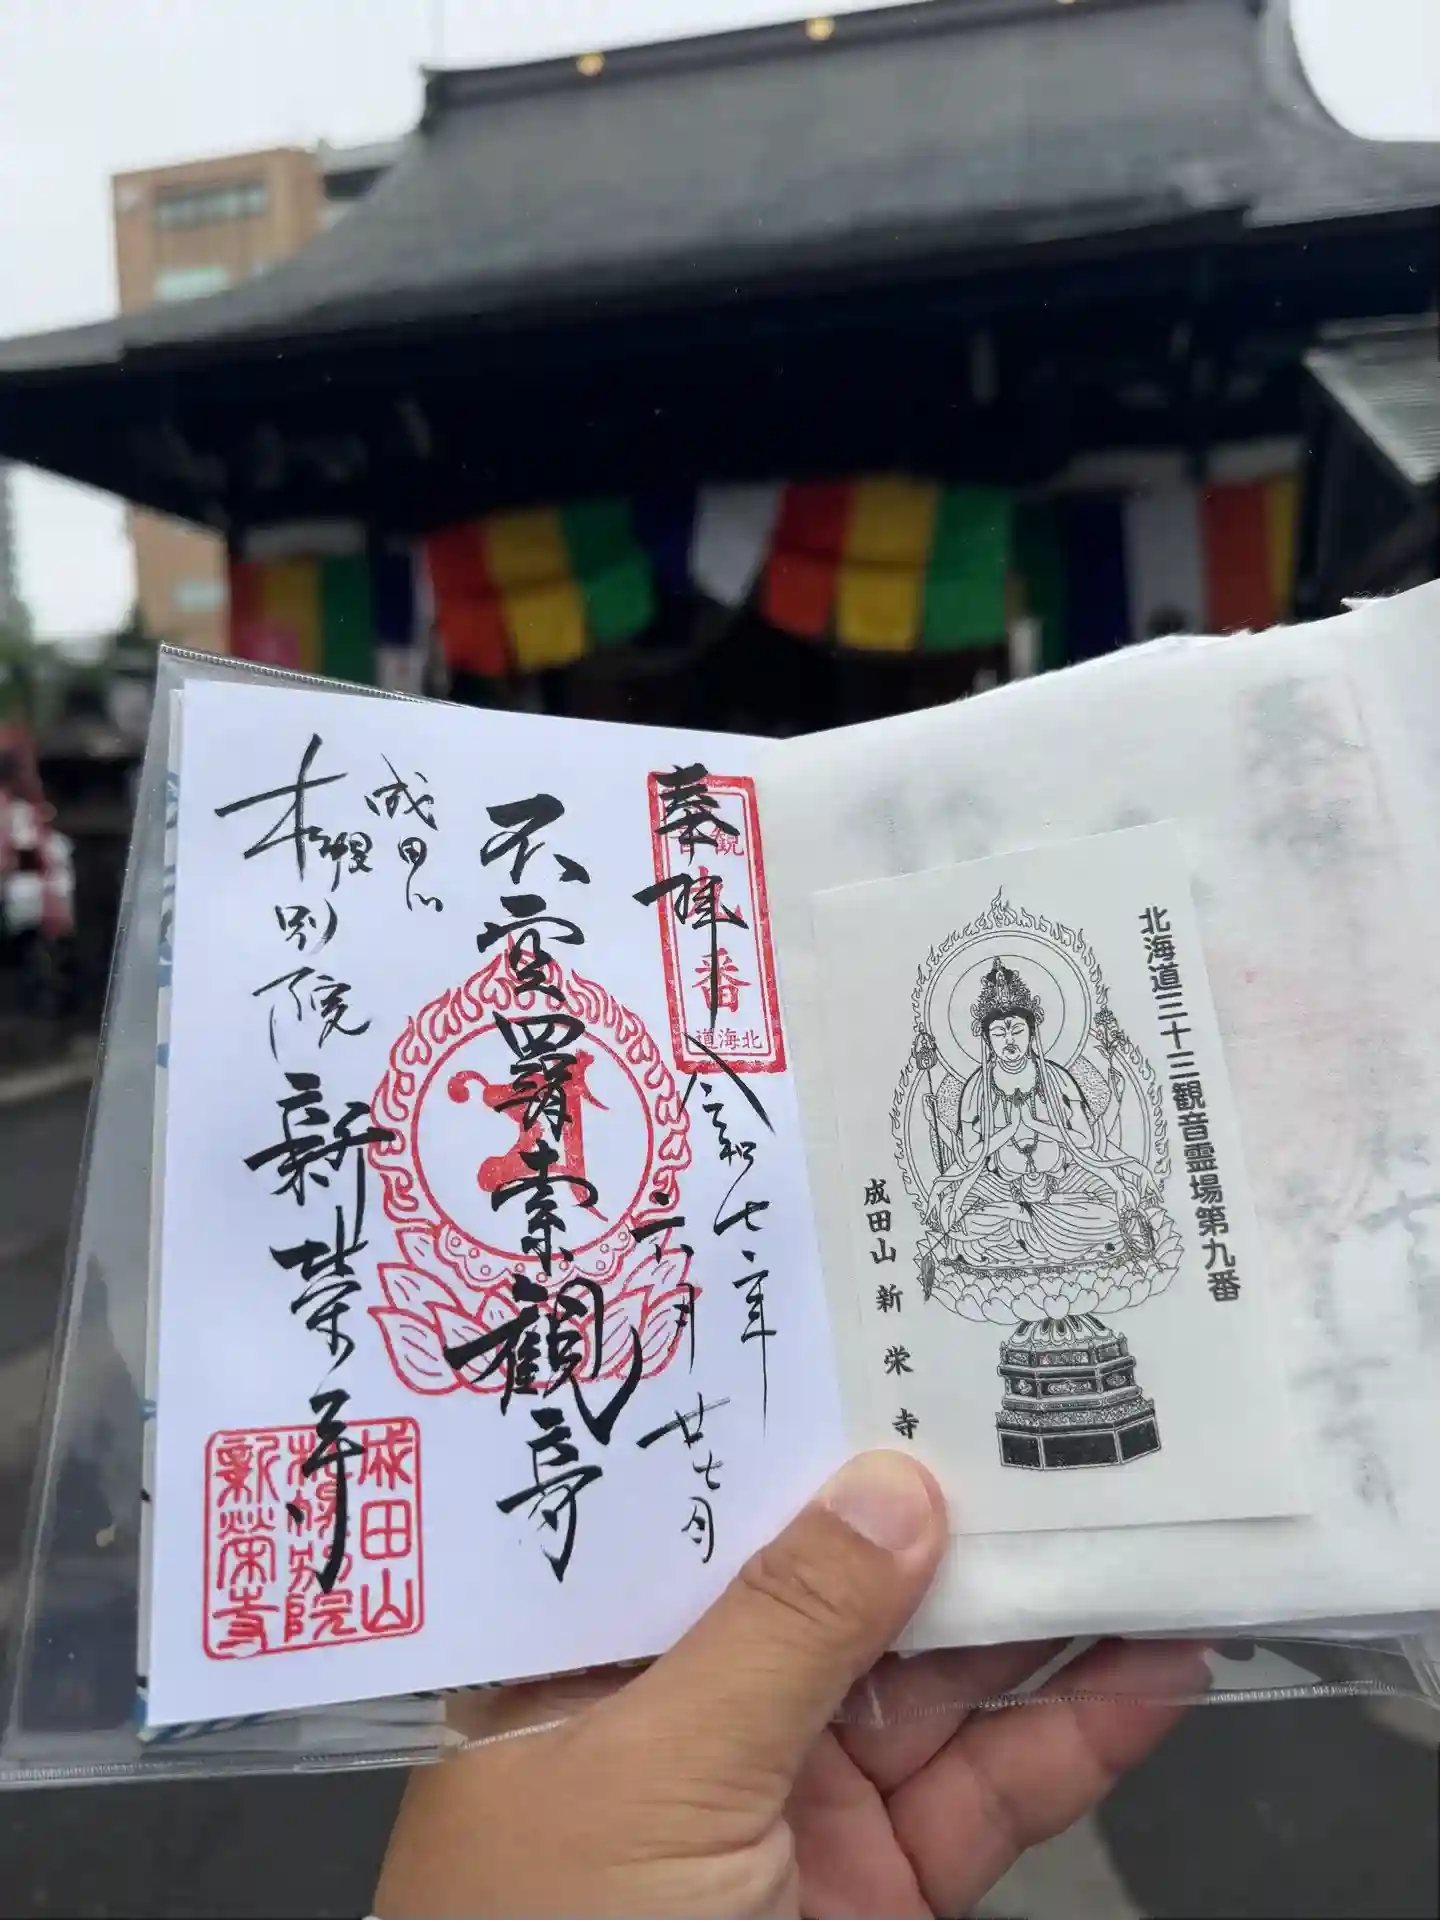 北海道三十三観音霊場第九番
成田山 新栄寺
奉拝
観音
九番
北海道
令和七年
六月廿七日
不空羂索観音
成田山
札幌別院
新栄寺
成田山
札幌別院
新栄寺